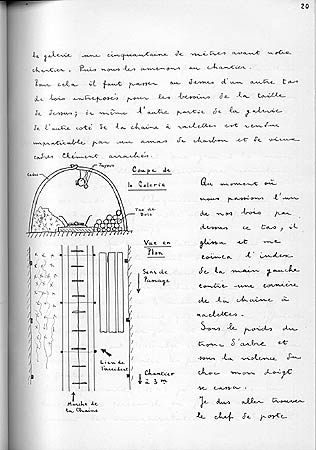 20
la galerie une cinquantaine de mètres avant notre
chantier. Puis nous les amenons au chantier.
Pour cela il faut passer au dessus d'un autre tas
de bois entreposés pour les besoins de la taille
de dessus; de même l'autre partie de la galerie
de l'autre coté de la chaine à raclettes est rendue
impraticable par un amas de charbon et de vieux
cadres Clément arrachés.
Tuyaux
Cadre
Coupe de
la Galerie
Tas de
Bois
Vue en
Plan
Sens de
Passage
Lieu de
l'accident
Chantier
à 3 m
Marche de
la Chaine
Au moment où
nous passions l'un
de nos bois par
dessus ce tas, il
glissa et me
coinca l'index
de la main gauche
contre une cornière
de la chaine à
raclettes.
Sous le poids du
tronc d'arbre et
sous la violence du
choc mon doigt
se cassa.
Je dus aller trouver
le chef de poste